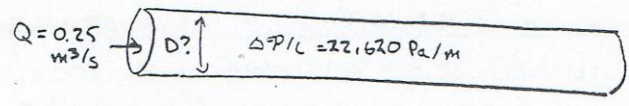 Q = 0.25
m³/s
D?
ΔP/L = 22,620 Pa/m